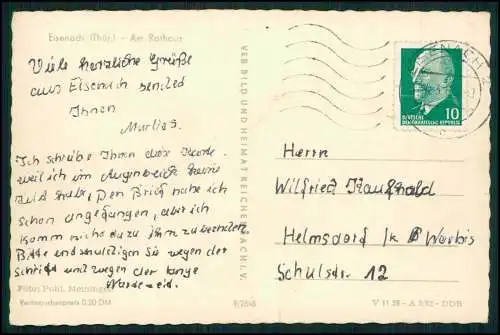 Eisenach (Thür.) - Am Rathaus
Viele herzliche Grüße
aus Eisenach sendet
Ihnen
Marlies.
Ich schreibe Ihnen diese Karte
weil ich im Augenblick keine
Zeit habe. Den Brief habe ich
schon angefangen, aber ich
komm nicht dazu ihn zu beenden.
Bitte endschuldigen Sie wegen der
Schrift und wegen der lange
Wartezeit.
Foto: Pohl, Meiningen
Verbraucherpreis 0,20 DM
VEB BILD UND HEIMAT REICHENBACH I. V.
DEUTSCHE
DEMOKRATISCHE REPUBLIK
10
Herrn
Wilfried
Helmsdorf K Worbis
Schulstr. 12
DDR